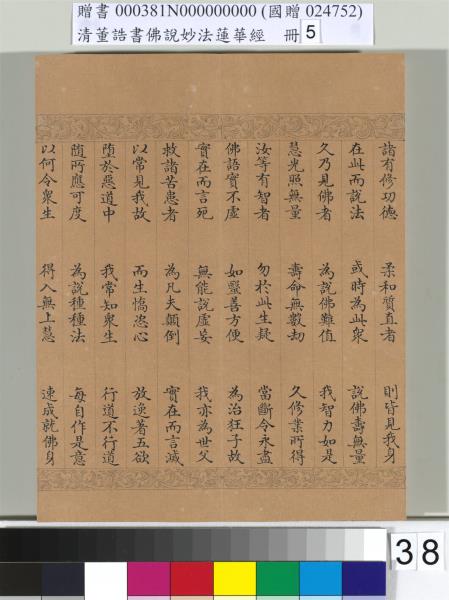 贈書 000381N000000000 (國贈 024752)
清董誥書佛說妙法蓮華經 冊 5
諸有修功德 柔和質直者 則皆見我身
在此而說法 或時為此衆 說佛壽無量
久乃見佛者 為說佛難值 我智力如是
慧光照無量 壽命無數劫 久修業所得
汝等有智者 勿於此生疑 當斷令永盡
佛語實不虛 如醫善方便 為治狂子故
實在而言死 無能說虛妄 我亦為世父
救諸苦患者 為凡夫顛倒 實在而言滅
以常見我故 而生憍恣心 放逸著五欲
墮於惡道中 我常知衆生 行道不行道
隨所應可度 為說種種法 每自作是意
以何令衆生 得入無上慧 速成就佛身
38